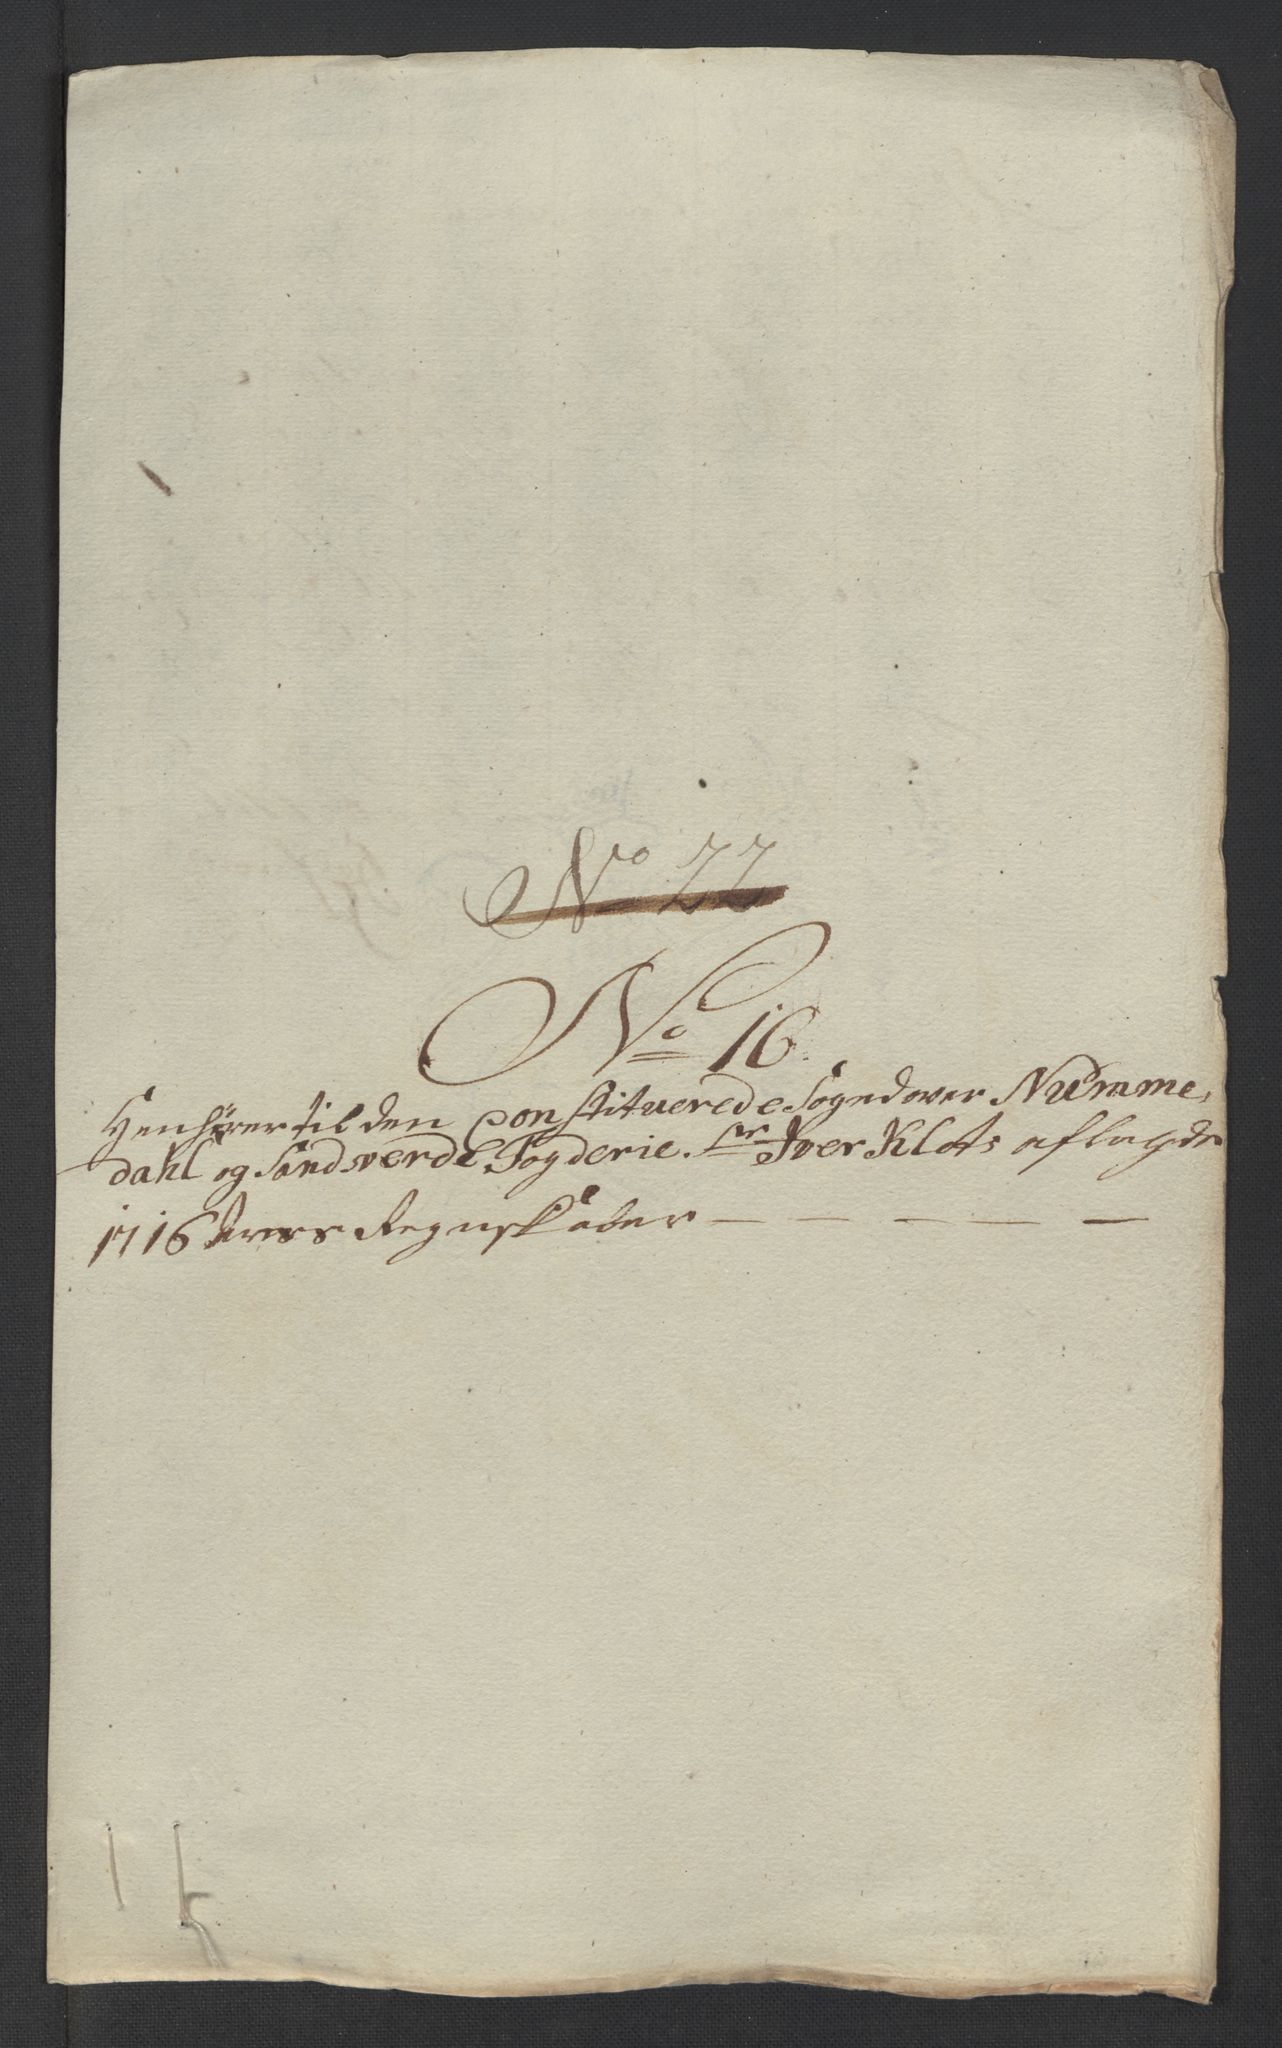 No 22
No 16
Henhører til den Constituerede Foged over Numme,
dahl og Sandsverds Fogderie. Sr Iver Klots aflagde
1716 Aars Regnskaber